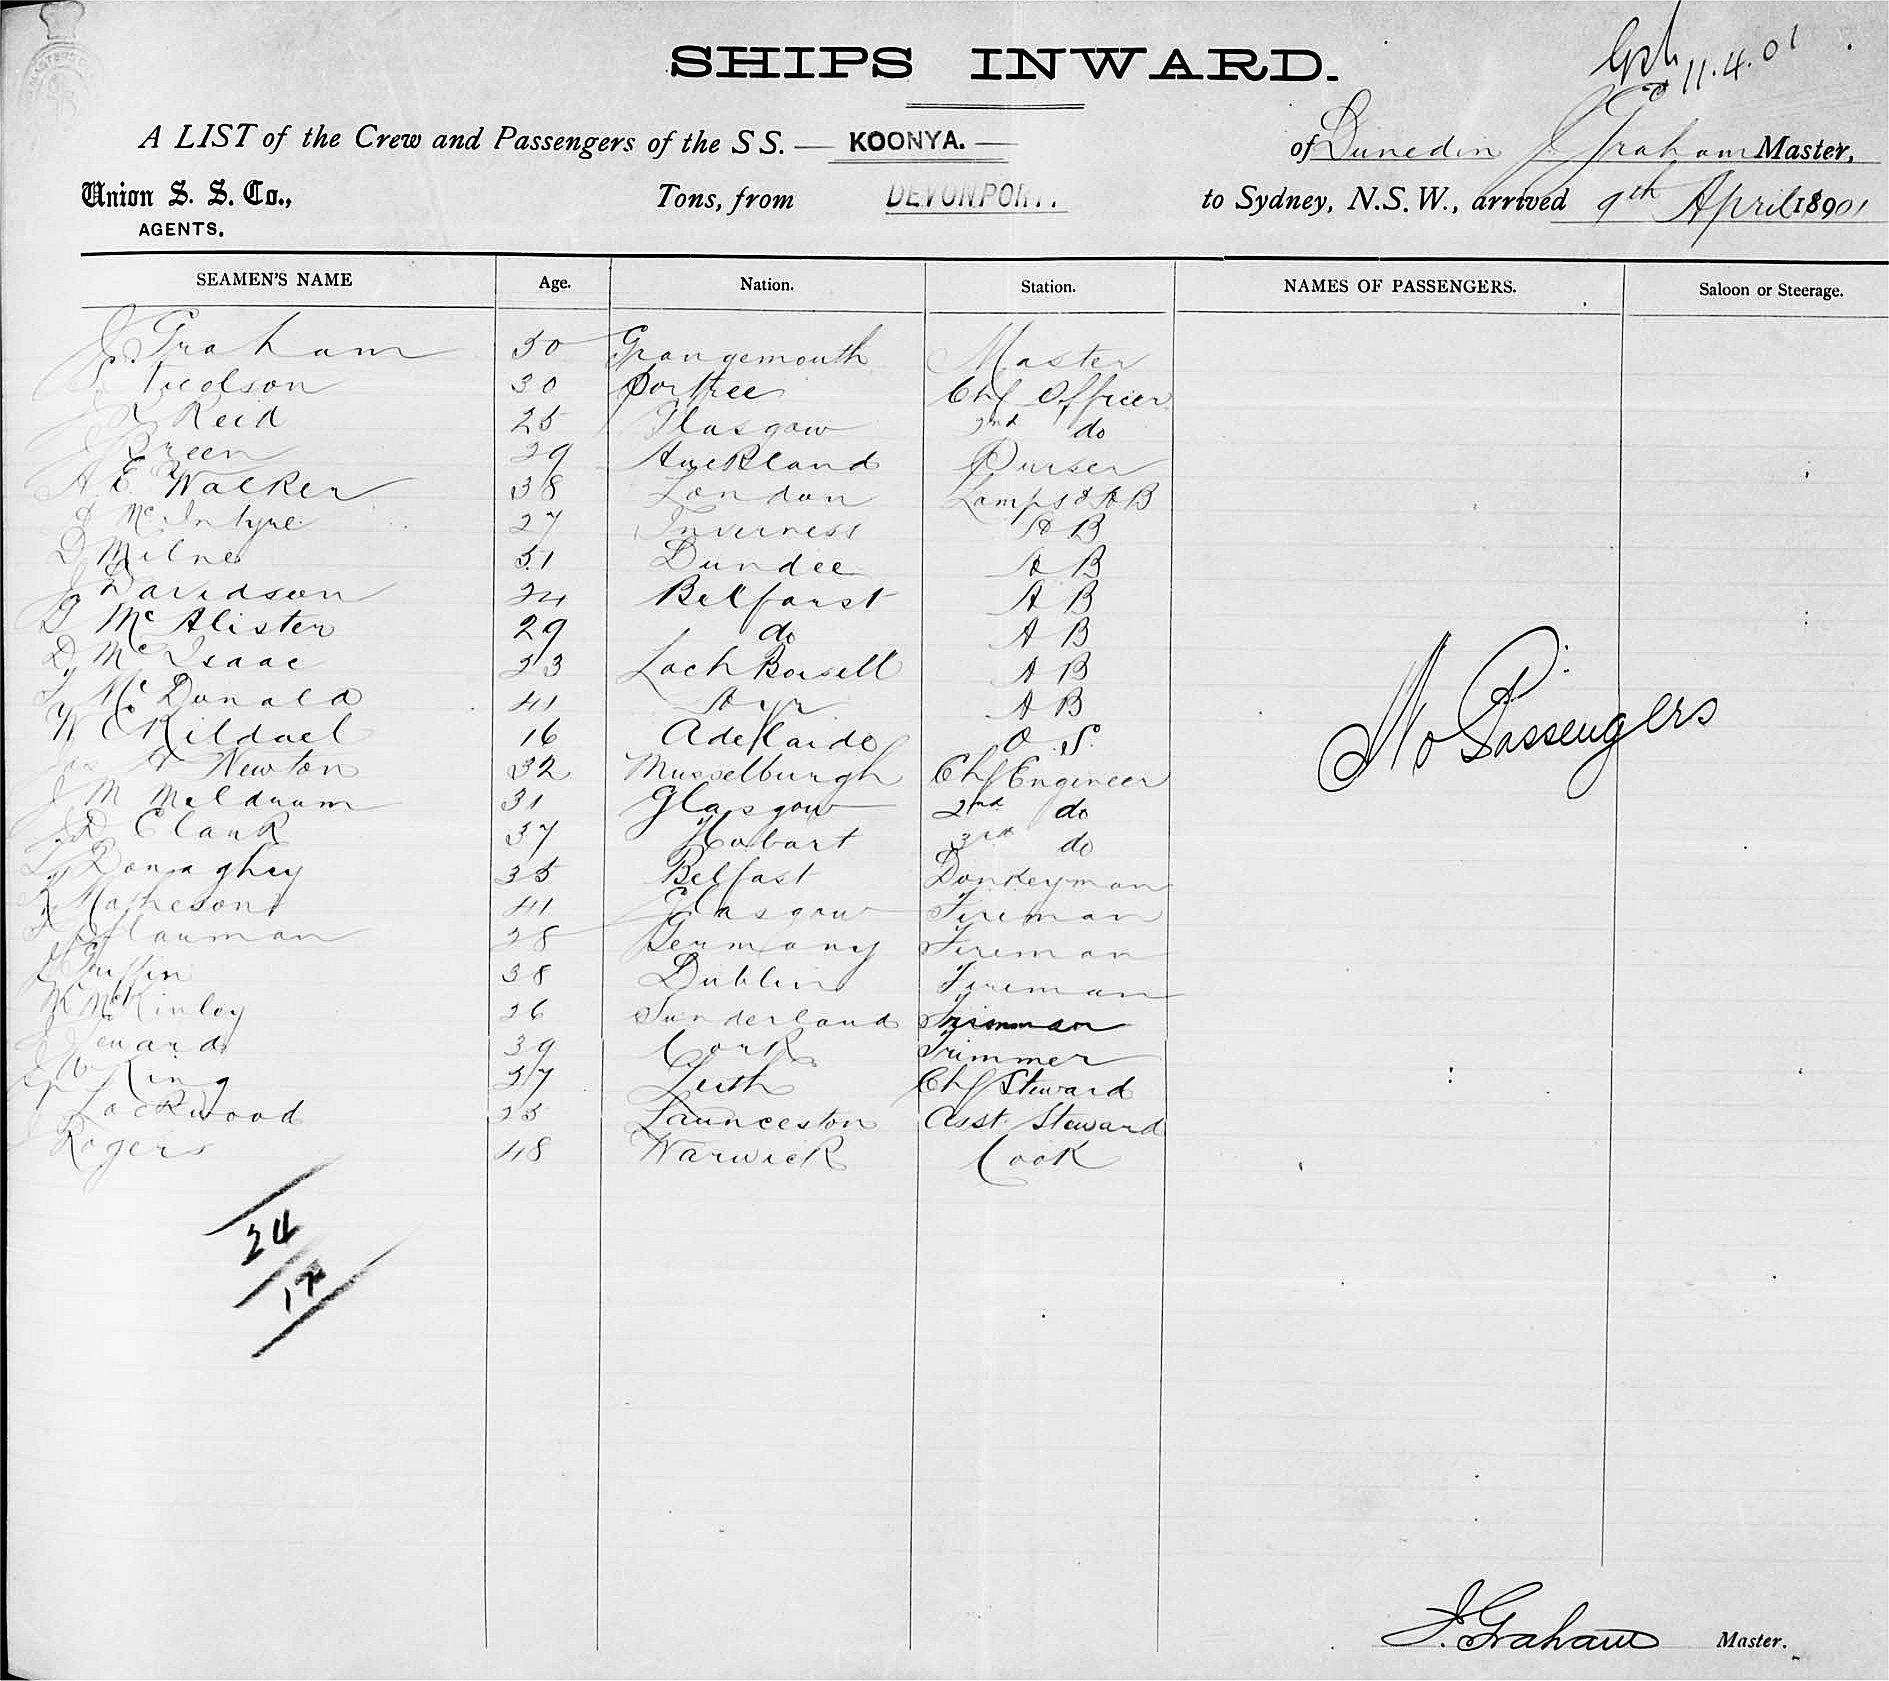 SHIPS INWARD.
11.4.01
A LIST of the Crew and Passengers of the SS. — KOONYA. — of Dunedin J Graham Master,
Union S. S. Co., Tons, from DEVONPORT. to Sydney, N.S.W., arrived 9th April 18901
AGENTS.
SEAMEN'S NAME Age. Nation. Station. NAMES OF PASSENGERS. Saloon or Steerage.
J Graham 50 Grangemouth Master
30 Portree Chf Officer
J R Reid 25 Glasgow 2nd do
J Green 29 Auckland Purser
A E Walker 38 London Lamps & A B
J McIntyre 27 Inverness A B
D Milne 51 Dundee A B
J Davidson 24 Belfarst A B
G McAlister 29 do A B
D McIsaac 33 Loch A B
McDonald 41 Ayr A B
W C Kildael 16 Adelaide O S.
A Newton 32 Musselburgh Chf Engineer
J M Meldrum 31 Glasgow 2nd do
R Clark 37 Hobart 3rd do
Donaghey 35 Belfast Donkeyman
Matheson 41 Glasgow Fireman
28 Germany Fireman
Griffin 38 Dublin Fireman
McKinley 26 Sunderland
39 Cork Trimmer
King 37 Leith Chf Steward
J Lockwood 25 Launceston Asst. Steward
Rogers 48 Warwick Cook
No Passengers
24
J. Graham Master.